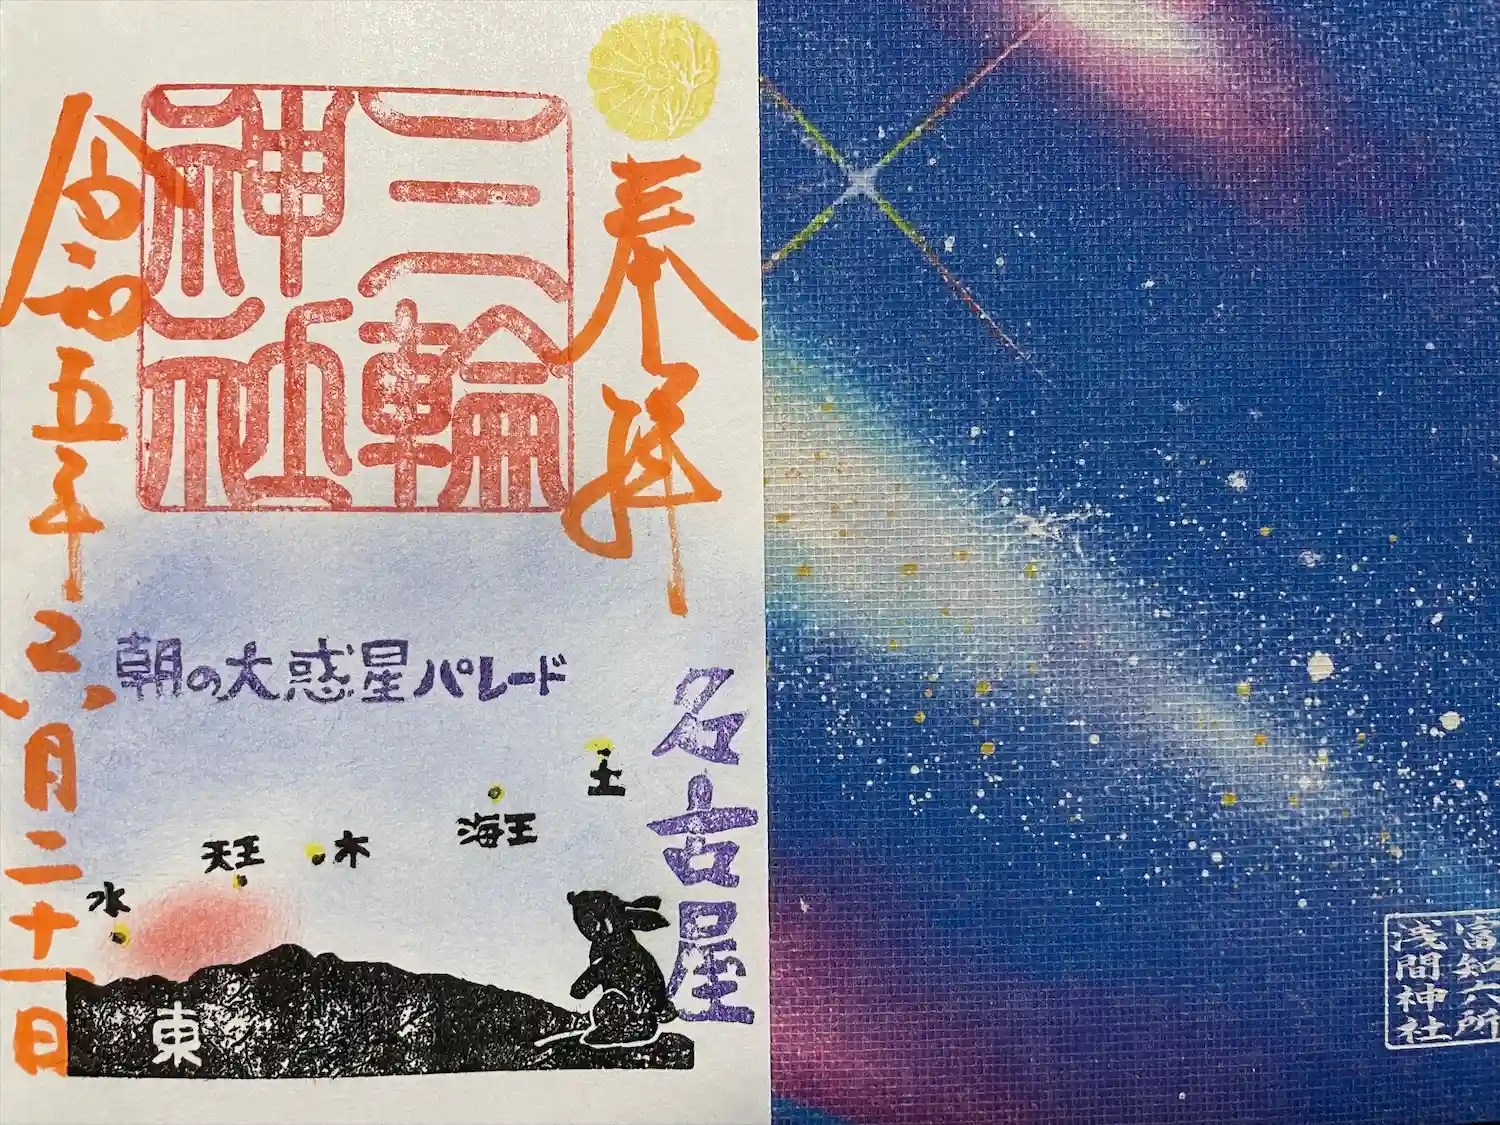 奉拝
三輪
神社
名古屋
令和五年六月二十一日
朝の大惑星パレード
土
海王
木
天王
水
東
富知六所
浅間神社